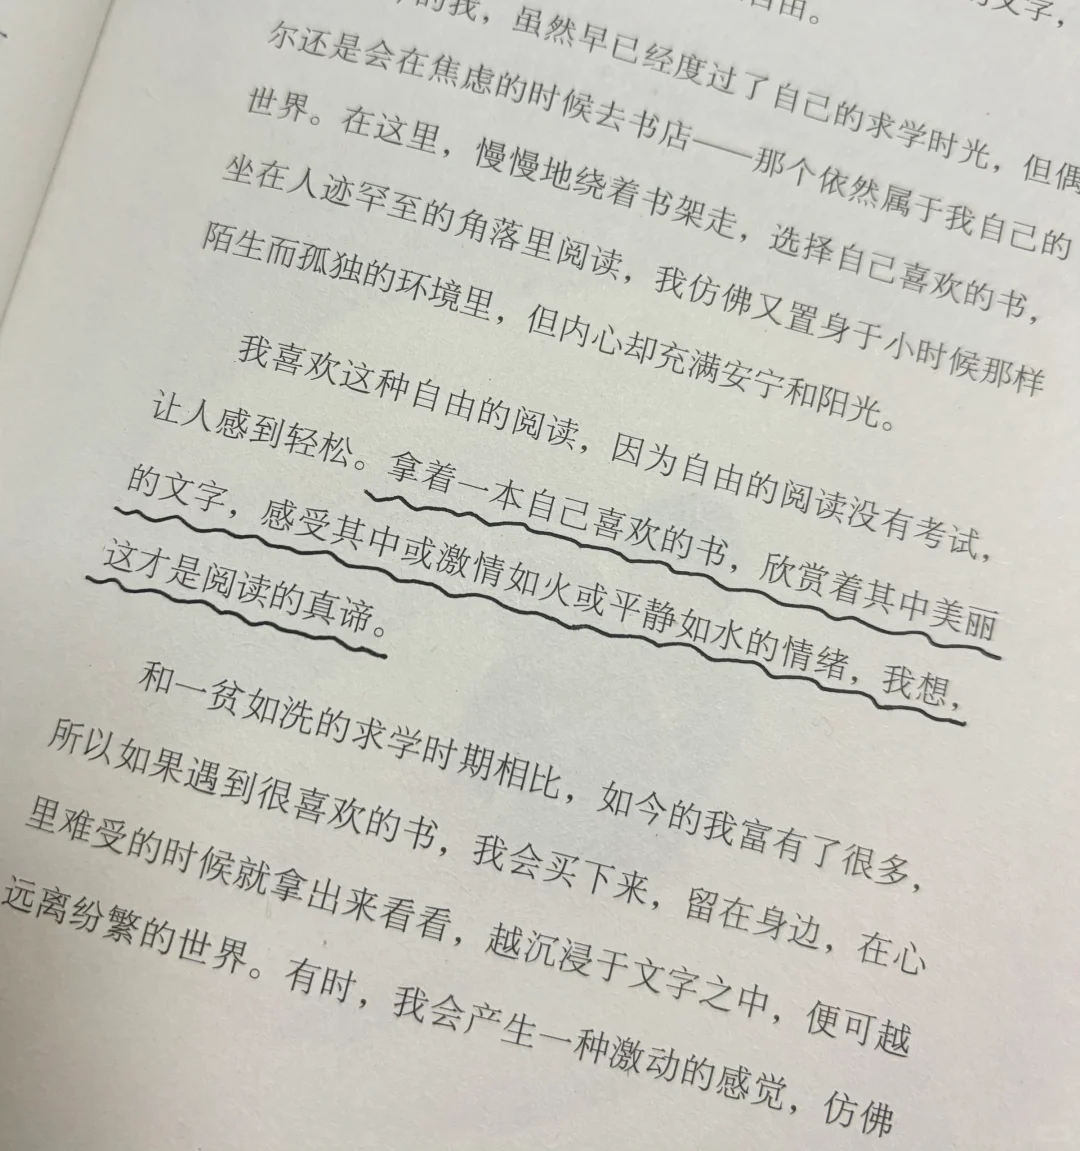 的文字，
自由。
的我，虽然早已经度过了自己的求学时光，但偶
尔还是会在焦虑的时候去书店——那个依然属于我自己的
世界。在这里，慢慢地绕着书架走，选择自己喜欢的书，
坐在人迹罕至的角落里阅读，我仿佛又置身于小时候那样
陌生而孤独的环境里，但内心却充满安宁和阳光。
我喜欢这种自由的阅读，因为自由的阅读没有考试，
让人感到轻松。拿着一本自己喜欢的书，欣赏着其中美丽
的文字，感受其中或激情如火或平静如水的情绪，我想，
这才是阅读的真谛。
和一贫如洗的求学时期相比，如今的我富有了很多，
所以如果遇到很喜欢的书，我会买下来，留在身边，在心
里难受的时候就拿出来看看，越沉浸于文字之中，便可越
远离纷繁的世界。有时，我会产生一种激动的感觉，仿佛